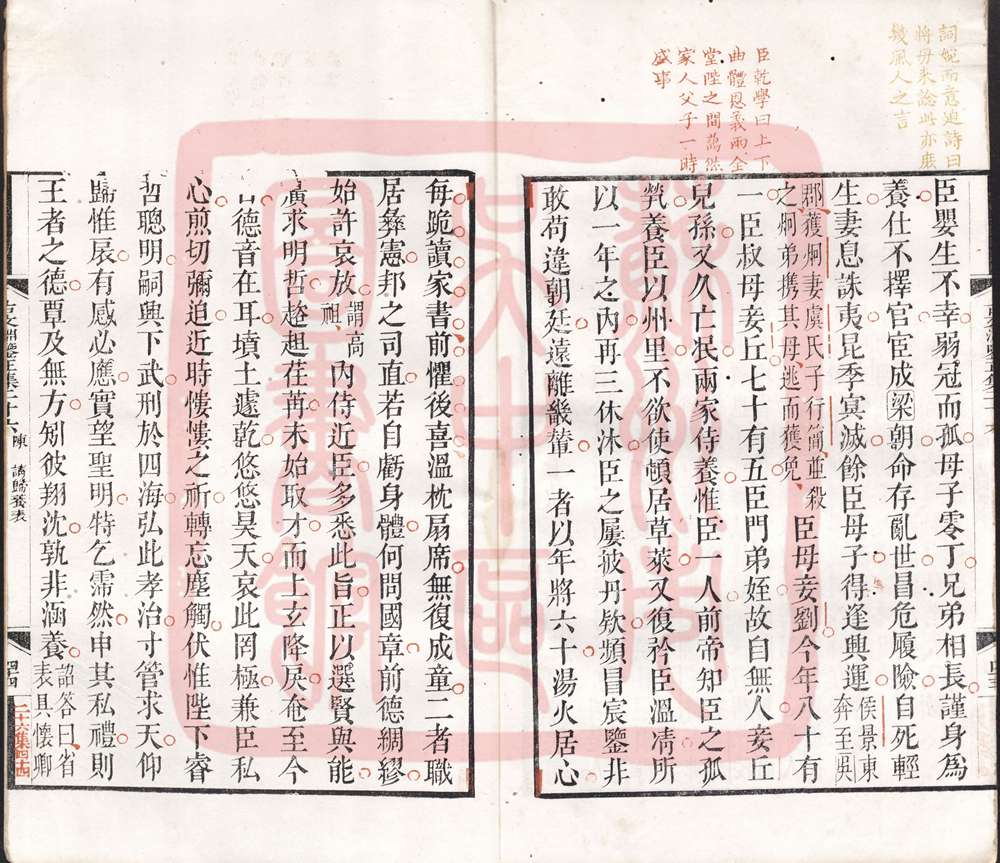 詞婉而意迫詩曰
將母來諗此亦庶
幾風人之言
臣乾學曰上下
曲體恩義兩全
堂陛之間藹然
家人父子一時
盛事
臣嬰生不幸弱冠而孤母子零丁兄弟相長謹身爲
養仕不擇官宦成梁朝命存亂世冒危履險自死輕
生妻息誅夷昆季冥滅餘臣母子得逢興運侯景東奔至吳
郡獲炯妻虞氏子行簡並殺之炯弟携其母逃而獲免臣母妾劉今年八十有
一臣叔母妾丘七十有五臣門弟姪故自無人妾丘
兒孫又久亡泯兩家侍養惟臣一人前帝知臣之孤
煢養臣以州里不欲使頓居草萊又復矜臣溫凊所
以一年之內再三休沐臣之屢披丹欵頻冒宸鑒非
敢苟違朝廷遠離畿輦一者以年將六十湯火居心
每跪讀家書前懼後喜溫枕扇席無復成童二者職
居彝憲邦之司直若自虧身體何問國章前德綢繆
始許哀放謂高祖內侍近臣多悉此旨正以選賢與能
廣求明哲趑趄荏苒未始取才而上玄降戾奄至今
日德音在耳墳土遽乾悠悠昊天哀此罔極兼臣私
心煎切彌迫近時慺慺之祈轉忘塵觸伏惟陛下睿
哲聰明嗣興下武刑於四海弘此孝治寸管求天仰
歸惟扆有感必應實望聖明特乞霈然申其私禮則
王者之德覃及無方矧彼翔沈孰非涵養詔答曰省表具懷卿
古文淵鑒正集二十六 陳 請歸養表
四四
二十六集四十四